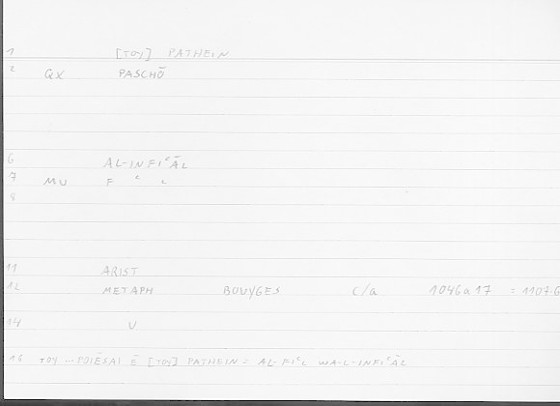 1 [TOY] PATHEIN
2 QX PASCHŌ
6 AL-INFIʿĀL
7 MU F ʿ L
8
11 ARIST
12 METAPH BOUYGES C/a 1046a17 = 1107.6
14 V
16 TOY ... POIĒSAI Ē [TOY] PATHEIN = AL-FIʿL WA-L-INFIʿĀL